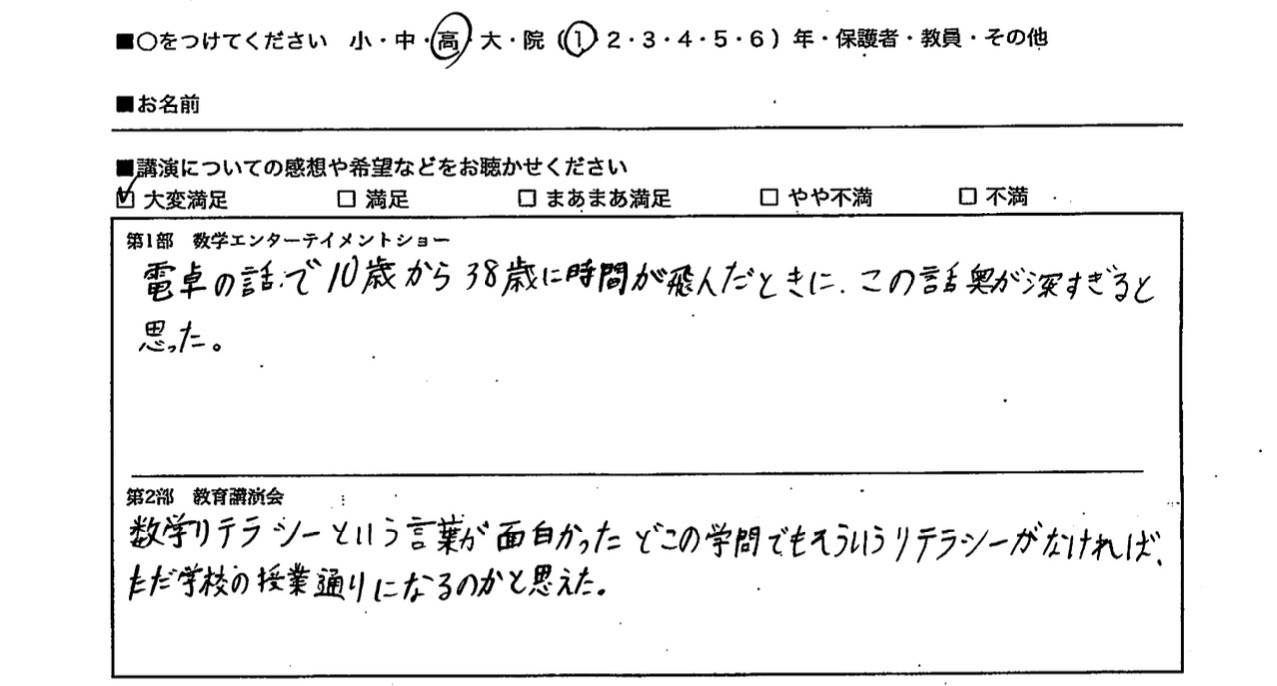 ■○をつけてください 小・中・高・大・院（1・2・3・4・5・6）年・保護者・教員・その他
■お名前
■講演についての感想や希望などをお聴かせください
☑ 大変満足 □ 満足 □ まあまあ満足 □ やや不満 □ 不満
第1部 数学エンターテイメントショー
電卓の話で10歳から38歳に時間が飛んだときに、この話奥が深すぎると
思った。
第2部 教育講演会
数学リテラシーという言葉が面白かった どこの学問でもそういうリテラシーがなければ、
ただ学校の授業通りになるのかと思えた。